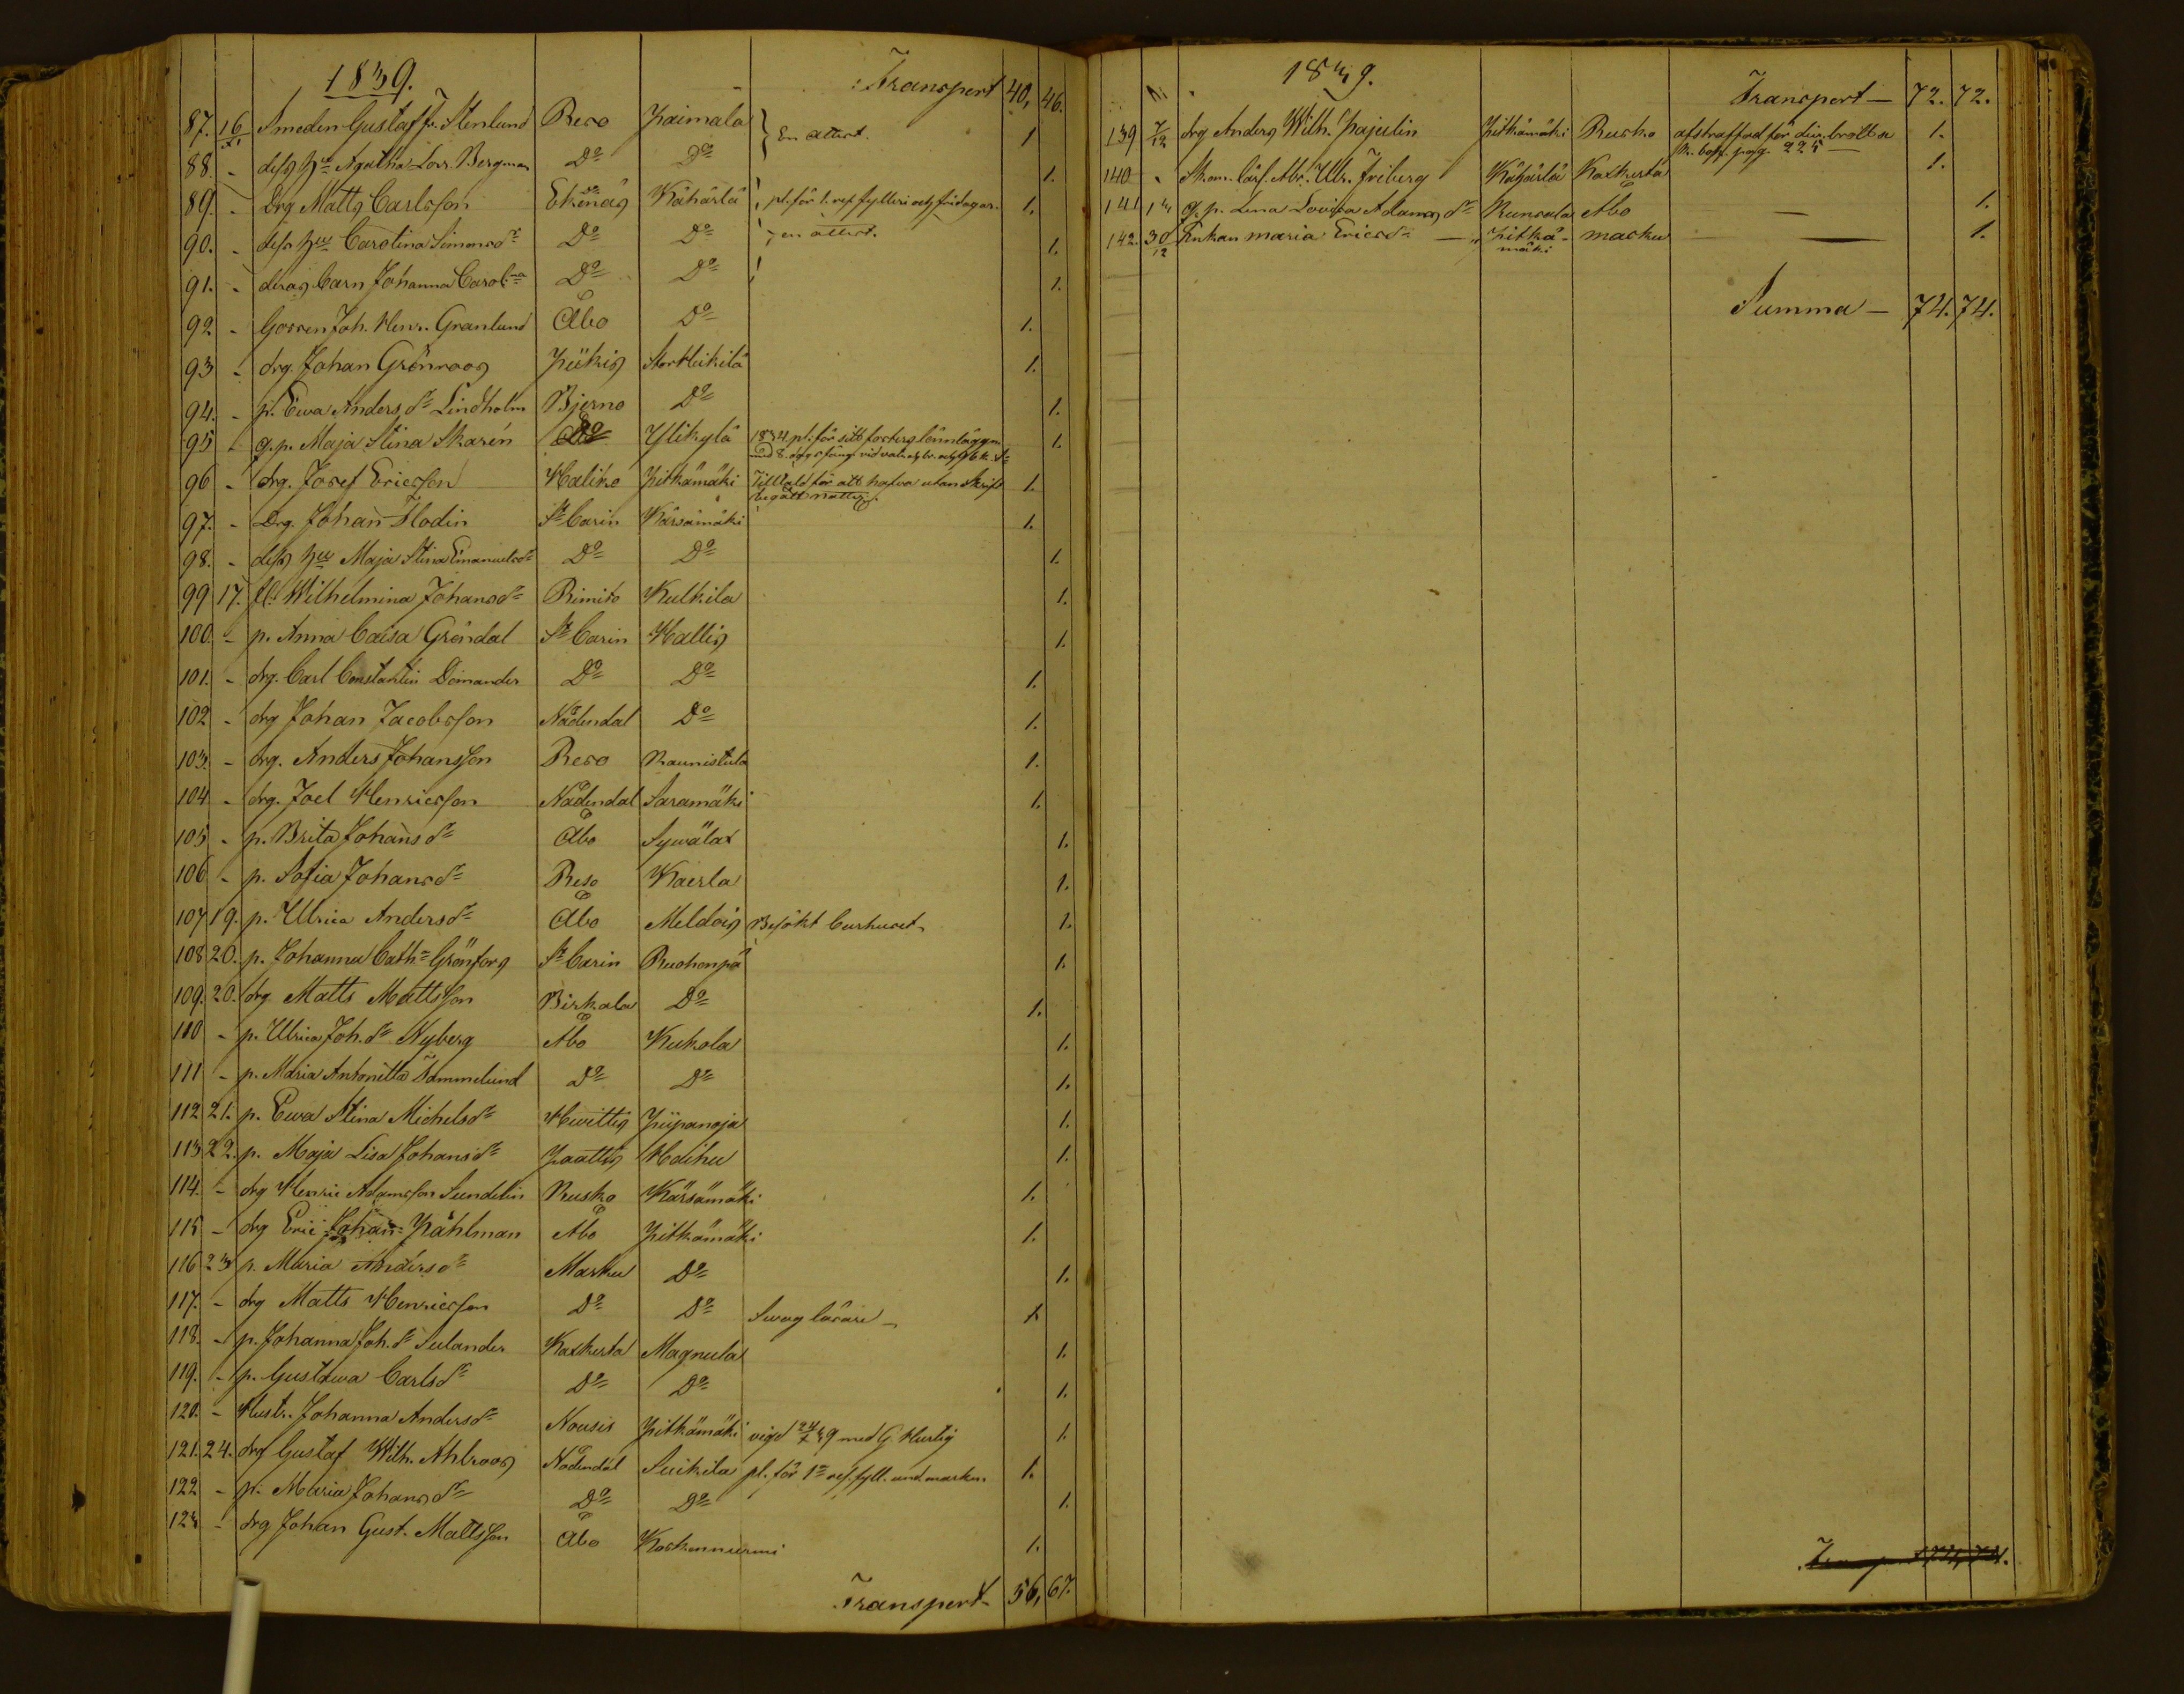 1839.
Transport 40, 46.
87. 16/X Smeden Gustaf Fr. Stenlund Reso Paimala En attest. 1
88. - dess Hu Agatha Lovs. Bergman Do Do 1.
89. - Drg Matts Carlsson Ekenäs Kähärlä pl. för 1. res fylleri 1.
90. - dess Hu Carolina Simonsdr Do Do en attest. 1.
91. - deras barn Johanna Carolna Do Do 1.
92 - Gossen Joh. Henr. Granlund Åbo Do 1.
93 - drg. Johan Grönroos Piikis Storheikilä 1.
94. - p. Ewa Anders dr Lindholm Bjerno Do 1.
95 - q.p. Maja Stina Skarén Do Ylikylä 1834 pl. för sitt fosters lönnläggn. 1.
med 8. dygs fäng. vid vatn
96 - drg. Josef Ericsson Haliko Pitkämäki Tilltald för att hafva utan Skrift 1.
begått nattv.
97. - Drg. Johan Flodin St Carin Kärsämäki 1.
98. - dess Hu Maja Stina Emanuelsdr Do Do 1.
99 17. fl. Wilhelmina Johansdr Rimito Kulkila 1.
100. - p. Anna Caisa Gröndal St Carin Hallis 1.
101. - drg. Carl Constantin Demander Do Do 1.
102 - drg Johan Jacobsson Nådendal Do 1.
103. - drg. Anders Johansson Reso Raunistula 1.
104 - drg. Joel Henricsson Nådendal Saramäki 1.
105 - p. Brita Johansdr Åbo Sywälax 1.
106 - p. Sofia Johansdr Reso Kaerla 1.
107 19. p. Ulrica Andersdr Åbo Meldois Besökt Curhuset 1.
108 20. p. Johanna Cath= Grönfors St Carin Ruohonpä 1.
109. 20. drg Matts Mattsson Birkala Do 1.
110 - p. Ulrica Joh. dr Nyberg Åbo Kukola 1.
111 - p. Maria Antonitta Sammelund Do Do 1.
112 21. p. Ewa Stina Michelsdr Hwittis Piipanoja 1.
113 22. p. Maja Lisa Johansdr Paattis Haihu 1.
114. - drg Henric Adamsson Sundelin Rusko Kärsämäki 1.
115 - drg Eric Johan Påhlman Åbo Pitkämäki 1.
116 23 p. Maria Andersdr Masku Do 1.
117. - drg Matts Henricsson Do Do Swag läsare - 1
118. - p. Johanna Joh. dr Sulander Kaxkerta Magnula 1.
119. - p. Gustawa Carlsdr Do Do 1.
120. - Hustr. Johanna Andersdr Nousis Pitkämäki vigd 24/X 39 med G. Hurtig 1.
121. 24. drg Gustaf Wilh. Ahlroos Nådendal Suikila pl. för 1a res. fyll. und marken. 1.
122 - p. Maria Johansdr Do Do 1.
123 - drg Johan Gust. Mattsson Åbo Koskennurmi 1.
Transport 56, 67.
1839.
Transport - 72. 72.
139 7/12 drg Anders Wilh. Pajulin Pitkämäki Rusko afstraffad för div. brott se 1.
pag. 225
140 - Sk.om. lärl. Abr. Ulr. Friberg Kähärlä Kaxkerta 1.
141 13 q. p. Lena Lovisa Adams dr Runsala Åbo - 1.
142. 30/12 Enkan Maria Ericsdr - Pitkä- Masku - 1.
mäki
Summa - 74. 74.
Transport 74, 74.